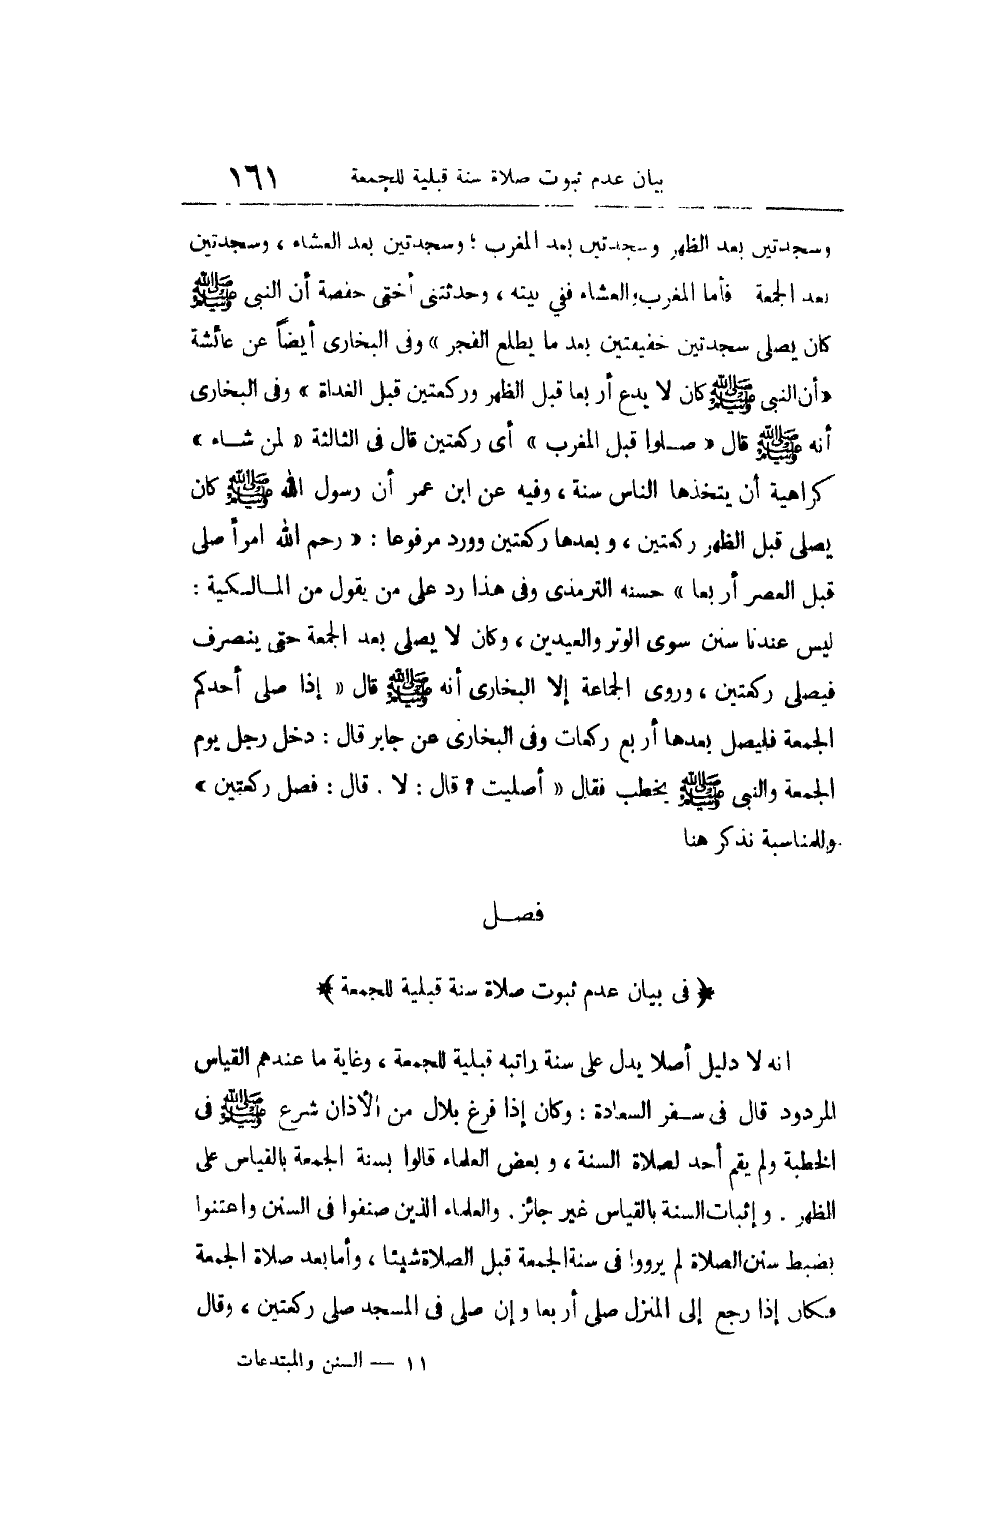 بيان عدم ثبوت صلاة سنة قبلية للجمعة ١٦١
وسجدتين بعد الظهر وسجدتين بعد المغرب ؛ وسجدتين بعد العشاء ، وسجدتين
بعد الجمعة فأما المغرب والعشاء ففي بيته ، وحدثتنى أختى حفصة أن النبى ﷺ
كان يصلى سجدتين خفيفتين بعد ما يطلع الفجر » وفى البخارى أيضاً عن عائشة
« أن النبى ﷺ كان لا يدع أربعا قبل الظهر وركعتين قبل الغداة » وفى البخارى
أنه ﷺ قال « صلوا قبل المغرب » أى ركعتين قال فى الثالثة « لمن شاء »
كراهية أن يتخذها الناس سنة ، وفيه عن ابن عمر أن رسول الله ﷺ كان
يصلى قبل الظهر ركعتين ، وبعدها ركعتين وورد مرفوعا : « رحم الله امرأ صلى
قبل العصر أربعا » حسنه الترمذى وفى هذا رد على من يقول من المالكية :
ليس عندنا سنن سوى الوتر والعيدين ، وكان لا يصلى بعد الجمعة حتى ينصرف
فيصلى ركعتين ، وروى الجماعة إلا البخارى أنه ﷺ قال « إذا صلى أحدكم
الجمعة فليصل بعدها أربع ركعات وفى البخارى عن جابر قال : دخل رجل يوم
الجمعة والنبى ﷺ يخطب فقال « أصليت ؟ قال : لا . قال : فصل ركعتين »
وللمناسبة نذكر هنا
فصل
﴿ فى بيان عدم ثبوت صلاة سنة قبلية للجمعة ﴾
انه لا دليل أصلا يدل على سنة راتبه قبلية للجمعة ، وغاية ما عندهم القياس
المردود قال فى سفر السعادة : وكان إذا فرغ بلال من الأذان شرع ﷺ فى
الخطبة ولم يقم أحد لصلاة السنة ، وبعض العلماء قالوا بسنة الجمعة بالقياس على
الظهر . وإثبات السنة بالقياس غير جائز . والعلماء الذين صنفوا فى السنن واعتنوا
بضبط سنن الصلاة لم يرووا فى سنة الجمعة قبل الصلاة شيئا ، وأما بعد صلاة الجمعة
فكان إذا رجع إلى المنزل صلى أربعا وإن صلى فى المسجد صلى ركعتين ، وقال
١١ — السنن والمبتدعات